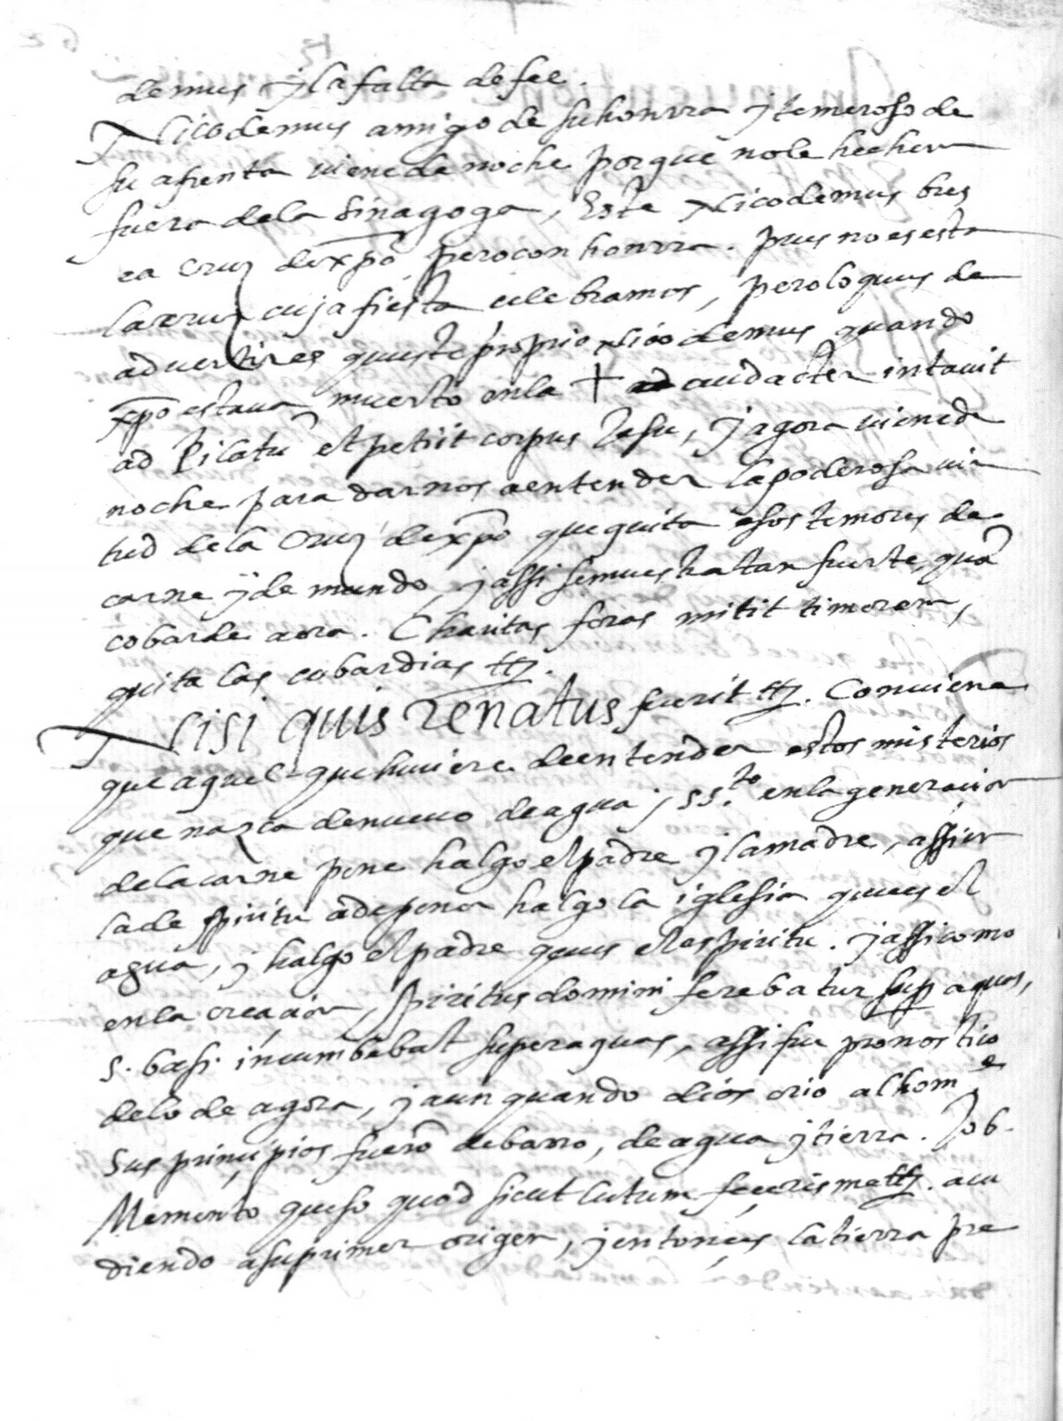 demus y la falta de fee.
Nicodemus amigo de su honrra y temeroso de
su afrenta viene de noche porque no le hechen
fuera dela Sinagoga, Este Nicodemus bus
ca cruz de xpo, pero con honrra. pues no es esta
la cruz cuja fiesta celebramos, pero lo que es de
advertir es queste proprio Nicodemus quando
xpo estava muerto en la + audacter intavit
ad Pilatu et petiit corpus Jesu, y agora viene de
noche para darnos a entender la poderosa vir
tud de la Cruz de xpo que quita esos temores de
carne y de mundo, y assi se muestra tan fuerte, qua
cobarde aora. Charitas foras mitit timorem,
quita las cobardias ttz.
Nisi quis renatus fuerit ttz. Conviene
que aquel que huviere de entender estos misterios
que nazca de nuevo de agua y SS.to en la generacion
dela carne pone halgo el padre y la madre, assi en
la de spiritu a de poner halgo la iglesia que es el
agua, y halgo el padre que es el espiritu. y assi como
en la creaçion, spiritus domini ferebatur sup aquas,
S. basi. incumbebat super aquas, assi fue pronostico
de lo de agora, y aun quando dios crio al home
sus prinçipios fuerõ de barro, de agua y tierra. Job.
Memento queso quod sicut lutum feceris me ttz. acu
diendo a su primer origen, y entonçes la tierra pre